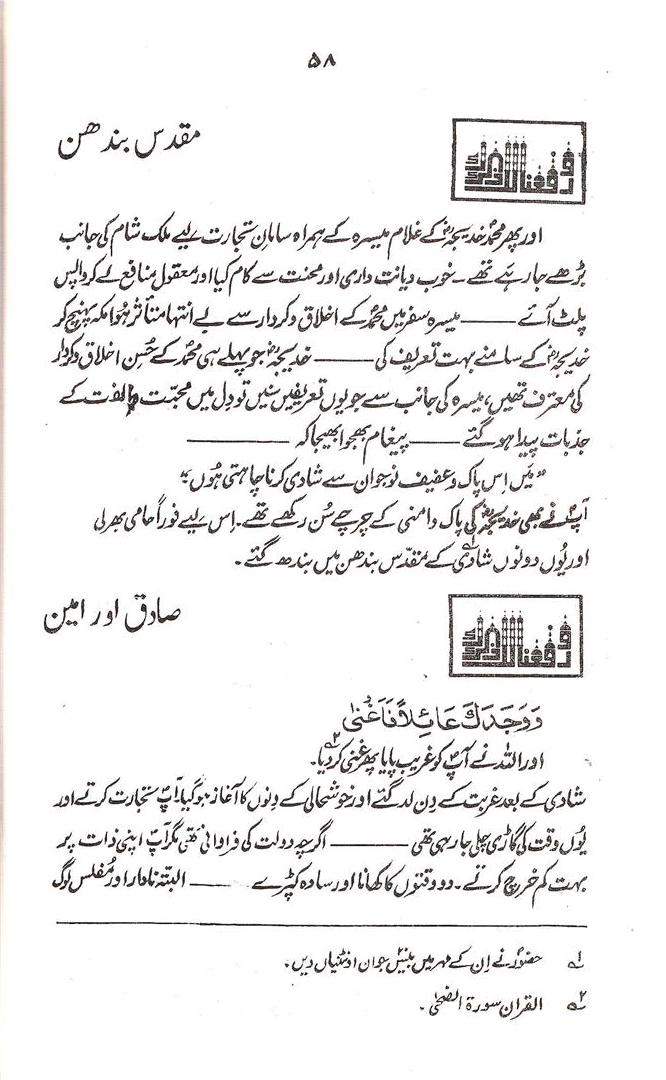 ۵۸
مقدس بندھن
ورفعنا لک ذکرک
اور پھر محمدؐ خدیجہؓ کے غلام میسرہ کے ہمراہ سامانِ تجارت لیے ملک شام کی جانب
بڑھے جا رہے تھے ۔ خوب دیانت داری اور محنت سے کام کیا اور معقول منافع لے کر واپس
پلٹ آئے ——— میسرہ سفر میں محمدؐ کے اخلاق و کردار سے بے انتہا متأثر ہُوا مکہ پہنچ کر
خدیجہؓ کے سامنے بہت تعریف کی ——— خدیجہؓ جو پہلے ہی محمدؐ کے حُسنِ اخلاق و کردار
کی معترف تھیں، میسرہ کی جانب سے جو یوں تعریفیں سنیں تو دل میں محبّت و الفت کے
جذبات پیدا ہو گئے ——— پیغام بھجوا بھیجا کہ ———
”مَیں اِس پاک و عفیف نوجوان سے شادی کرنا چاہتی ہُوں“
آپؐ نے بھی خدیجہؓ کی پاک دامنی کے چرچے سُن رکھے تھے۔ اِس لیے فوراً حامی بھر لی
اور یُوں دونوں شادی۱؎ کے مقدس بندھن میں بندھ گئے ۔
صادق اور امین
ورفعنا لک ذکرک
وَوَجَدَكَ عَائِلًا فَاَغْنٰى
اور اللہ نے آپؐ کو غریب پایا پھر غنی کر دیا۲؎۔
شادی کے بعد غربت کے دِن لد گئے اور خوشحالی کے دِنوں کا آغاز ہو گیا۔ آپؐ تجارت کرتے اور
یُوں وقت کی گاڑی چلی جا رہی تھی ——— اگرچہ دولت کی فراوانی تھی مگر آپؐ اپنی ذات پر
بہت کم خرچ کرتے ۔ دو وقتوں کا کھانا اور سادہ کپڑے ——— البتّہ نادار اور مُفلس لوگ
۱؎ حضورؐ نے اِن کے مہر میں بیس جوان اونٹنیاں دیں۔
۲؎ القرآن سورۃ الضحیٰ ۔